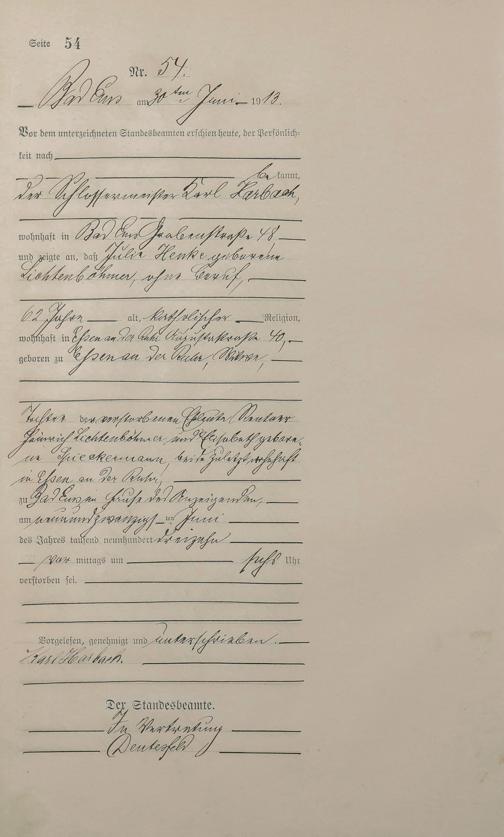 Seite 54
Nr. 54.
Bad Ems am 30ten Juni 1913.
Vor dem unterzeichneten Standesbeamten erschien heute, der Persönlich-
keit nach
be kannt,
der Schlossermeister Karl Harbach,
wohnhaft in Bad Ems Grabenstraße 48,
und zeigte an, daß Julie Henke geborene
Lichtenböhmer, ohne Beruf,
62 Jahre alt, katholischer Religion,
wohnhaft in Essen an der Ruhr Augustastraße 40,
geboren zu Essen an der Ruhr, Witwe,
Tochter der verstorbenen Eheleute Rentner
Heinrich Lichtenböhmer und Elisabeth gebore-
ne Spieckermann, beide zuletzt wohnhaft
in Essen an der Ruhr,
zu Bad Ems im Hause des Anzeigenden,
am neunundzwanzigsten Juni
des Jahres tausend neunhundert dreizehn
vor mittags um sechs Uhr
verstorben sei.
Vorgelesen, genehmigt und unterschrieben.
Karl Harbach.
Der Standesbeamte.
In Vertretung